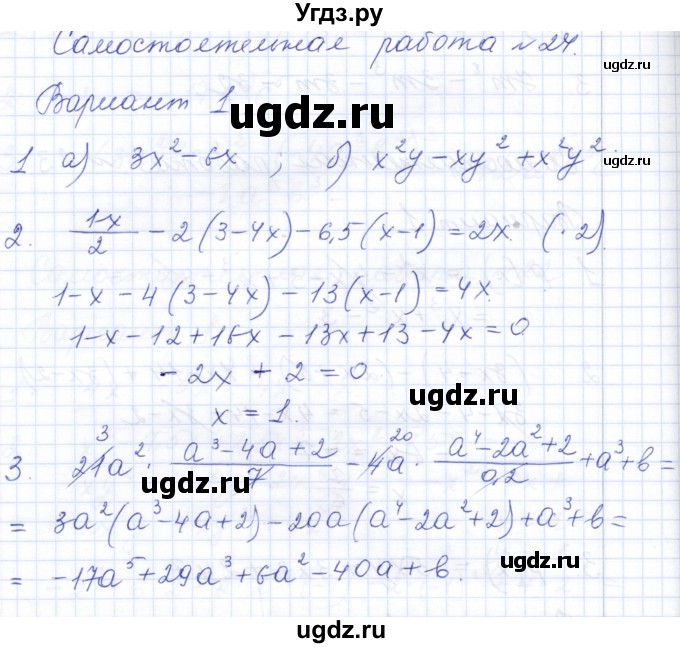 Угдз.ру
Самостоятельная работа №24.
ugdz.ru
Вариант 1
ugdz.ru
ugdz.ru
1 а) 3x²-6x ; б) x²y-xy²+x²y².
ugdz.ru
2. (1-x)/2 - 2(3-4x)-6,5(x-1)=2x (·2).
ugdz.ru
1-x-4(3-4x)-13(x-1)=4x
1-x-12+16x-13x+13-4x=0
ugdz.ru
ugdz.ru
-2x+2=0
x=1.
ugdz.ru
3. 21a² ³ · (a³-4a+2)/7 - 4a ²⁰ · (a⁴-2a²+2)/0,2 + a³+b=
ugdz.ru
ugdz.ru
= 3a²(a³-4a+2)-20a(a⁴-2a²+2)+a³+b=
ugdz.ru
= -17a⁵+29a³+6a²-40a+b.
ugdz.ru
ugdz.ru
ugdz.ru